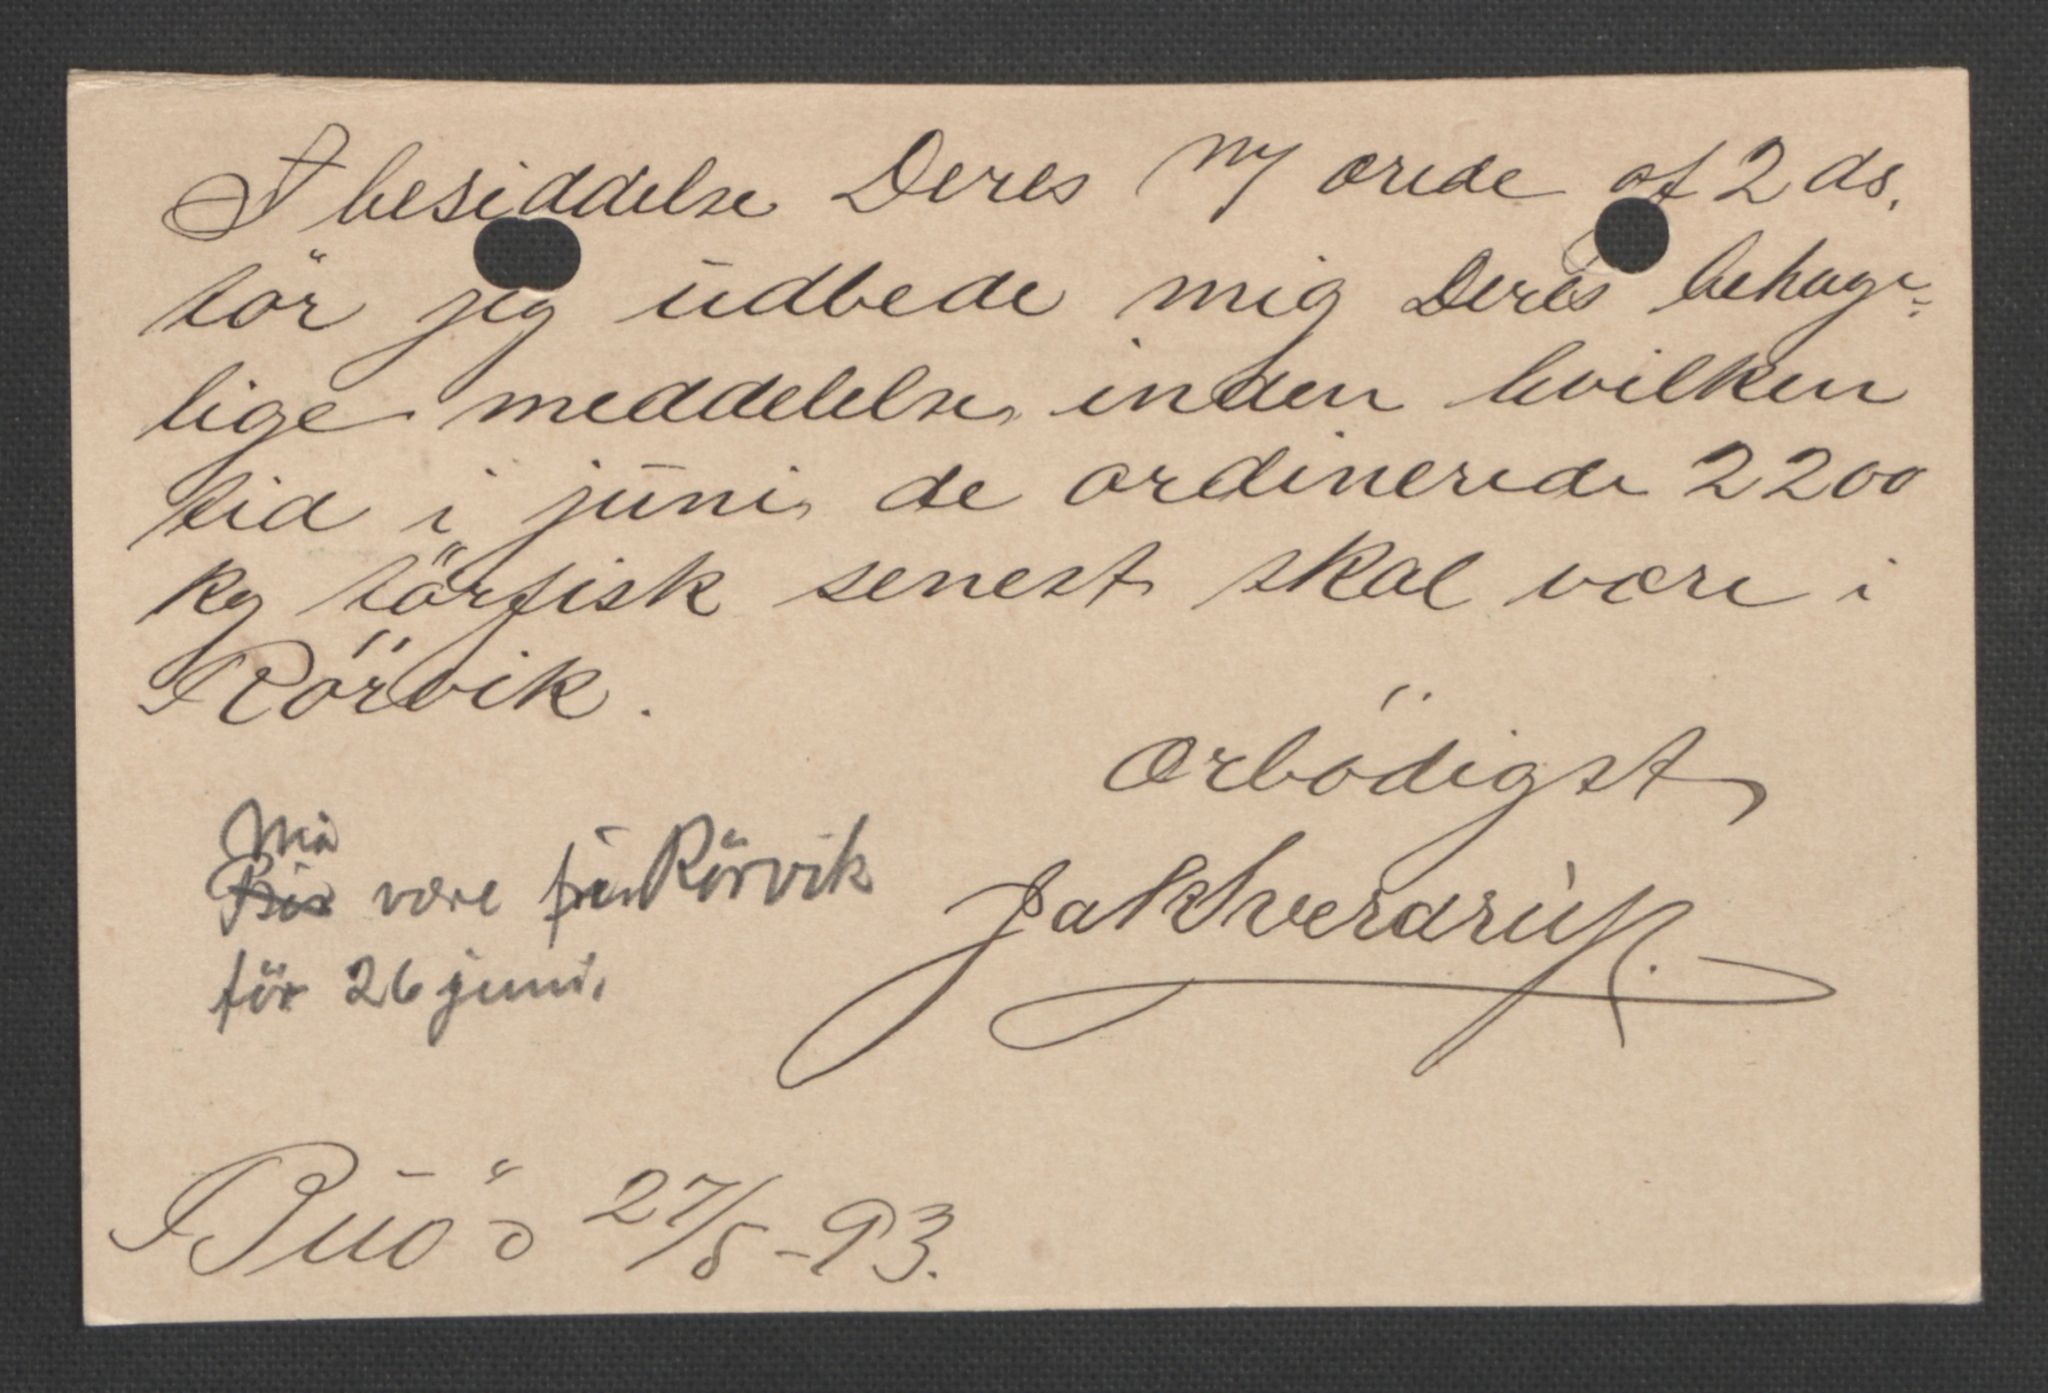 I besiddelse Deres ærede af 2 ds.
tör jeg udbede mig Deres behage-
lige meddelelse, inden hvilken
tid i juni, de ordinerede 2200
kg törfisk senest skal være i
Rörvik.
Ærbödigst
Jak Sverdrup.
Må
være Rörvik
för 26 juni.
Buö 27/5-93.